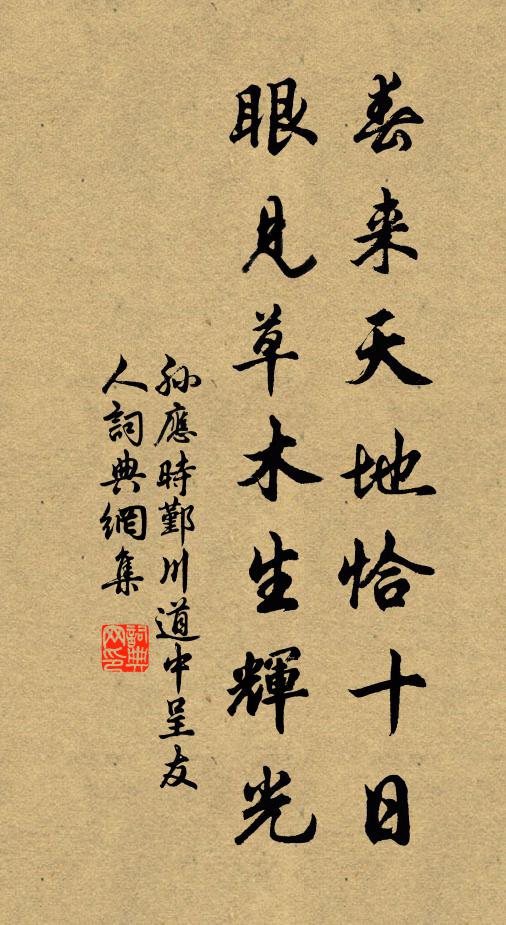 春来天地恰十日
眼見草木生輝光
孫應時鄞川道中呈友
人詞典網集
詞典
网印